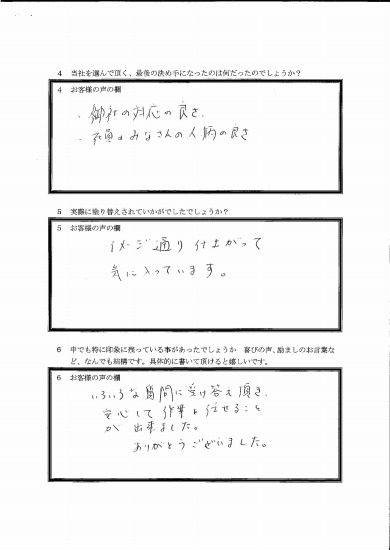 4 当社を選んで頂く、最後の決め手になったのは何だったのでしょうか？
4 お客様の声の欄
・御社の対応の良さ、
・社員みなさんの人柄の良さ
5 実際に塗り替えされていかがでしたでしょうか？
5 お客様の声の欄
イメージ通り仕上がって
気に入っています。
6 中でも特に印象に残っている事があったでしょうか 喜びの声、励ましのお言葉な
ど、なんでも結構です。具体的に書いて頂けると嬉しいです。
6 お客様の声の欄
いろいろな質問に受け答え頂き、
安心して作業を任せること
が出来ました。
ありがとうございました。